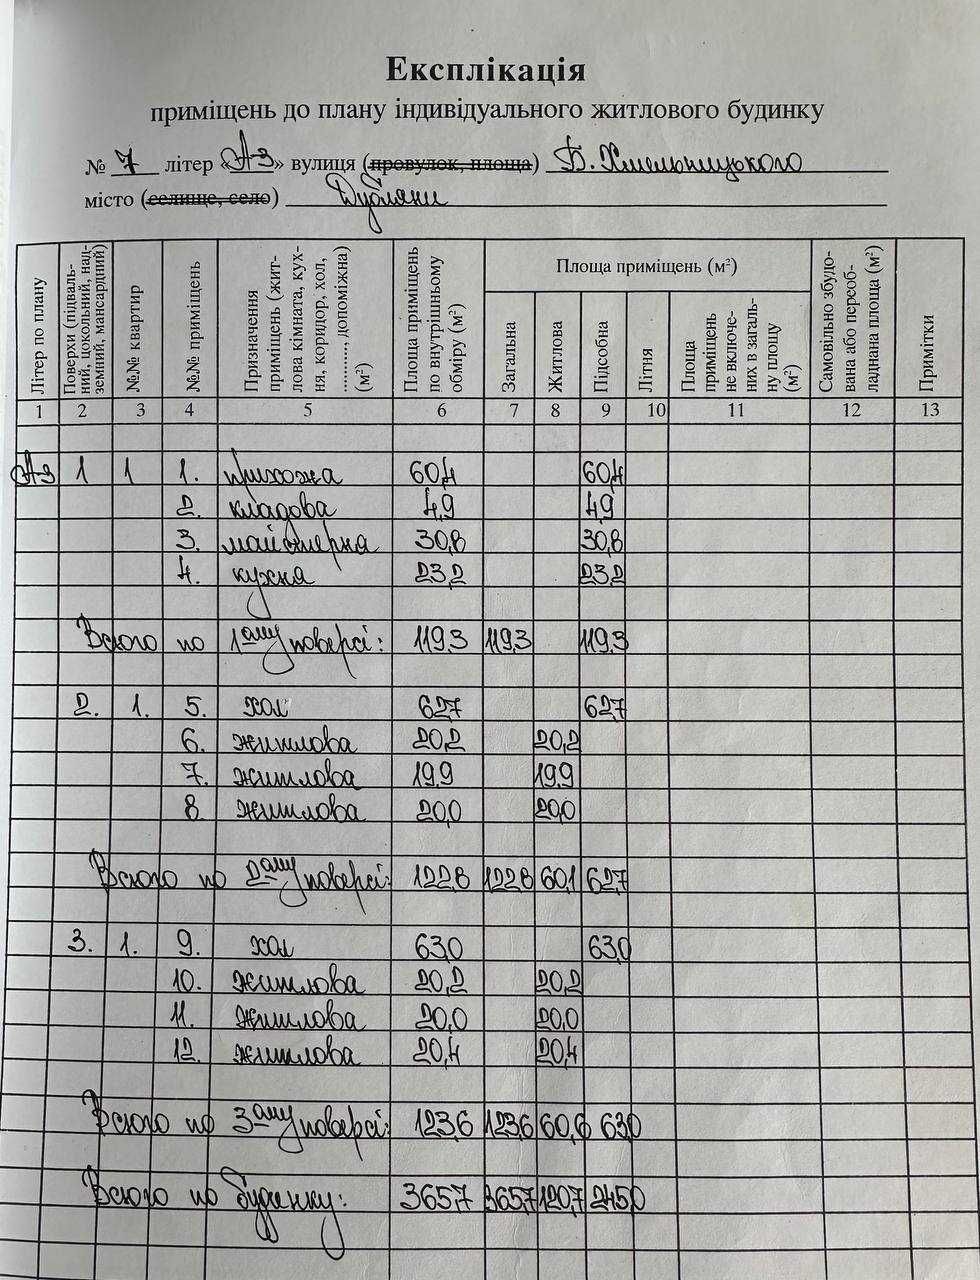 Експлікація
приміщень до плану індивідуального житлового будинку
№ 7 літер «А-3» вулиця (провулок, площа) Б. Хмельницького
місто (селище, село) Дубляни
Літер по плану
Поверхи (підвальний, цокольний, надземний, мансардний)
№№ квартир
№№ приміщень
Призначення приміщень (житлова кімната, кухня, коридор, хол, ............ допоміжна) (м²)
Площа приміщень по внутрішньому обміру (м²)
Площа приміщень (м²)
Загальна
Житлова
Підсобна
Літня
Площа приміщень не включених в загальну площу (м²)
Самовільно збудована або переобладнана площа (м²)
Примітки
1 2 3 4 5 6 7 8 9 10 11 12 13
А-3 1 1 1. прихожа 60,4 60,4
2. кладова 4,9 4,9
3. майстерня 30,8 30,8
4. кухня 23,2 23,2
Всього по 1ому поверсі: 119,3 119,3 119,3
2. 1. 5. хол 62,7 62,7
6. житлова 20,2 20,2
7. житлова 19,9 19,9
8. житлова 20,0 20,0
Всього по 2ому поверсі: 122,8 122,8 60,1 62,7
3. 1. 9. хол 63,0 63,0
10. житлова 20,2 20,2
11. житлова 20,0 20,0
12. житлова 20,4 20,4
Всього по 3ому поверсі: 123,6 123,6 60,6 63,0
Всього по буденку: 365,7 365,7 120,7 245,0